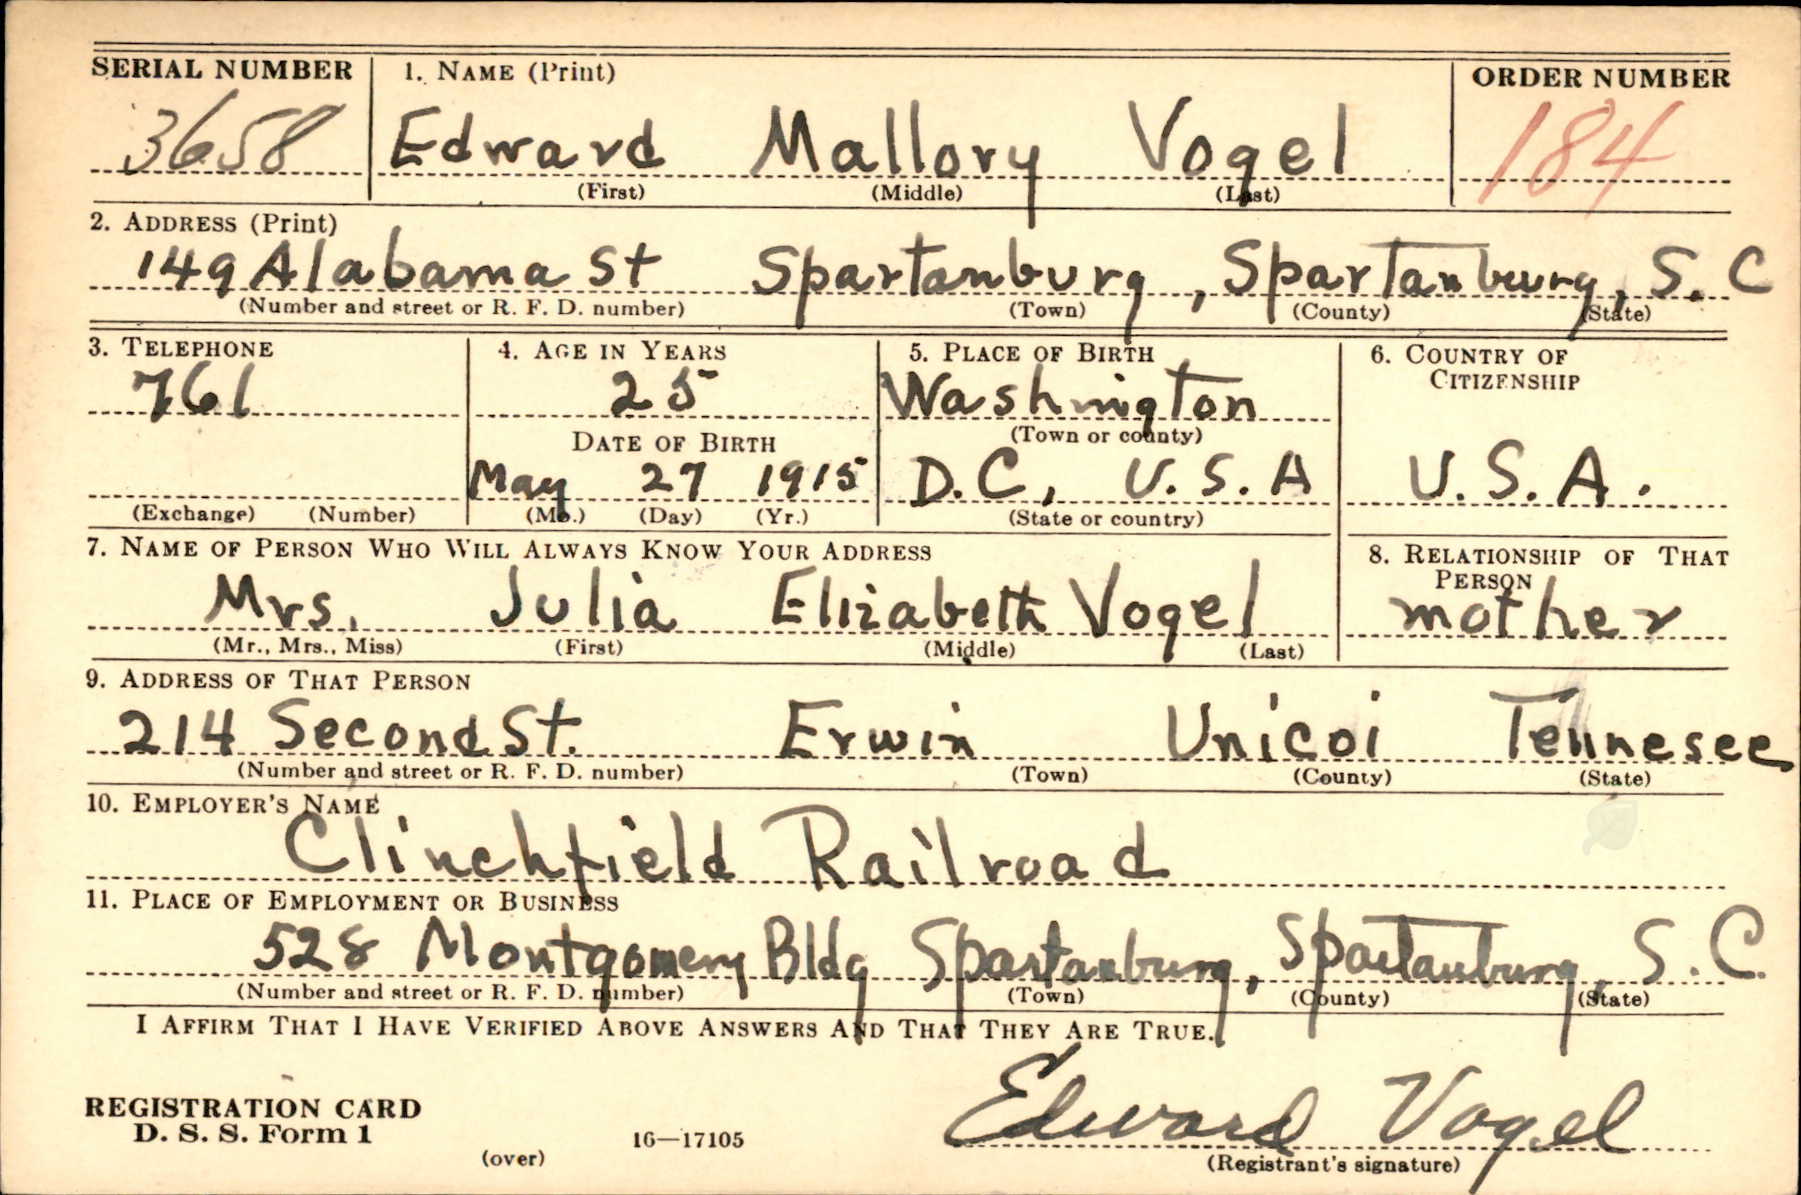 SERIAL NUMBER 1. NAME (Print) ORDER NUMBER
3658 Edward Mallory Vogel 184
(First) (Middle) (Last)
2. ADDRESS (Print)
149 Alabama St Spartanburg, Spartanburg, S. C
(Number and street or R. F. D. number) (Town) (County) (State)
3. TELEPHONE 4. AGE IN YEARS 5. PLACE OF BIRTH 6. COUNTRY OF
CITIZENSHIP
761 25 Washington
DATE OF BIRTH (Town or county)
May 27 1915 D.C, U.S.A U.S.A.
(Exchange) (Number) (Mo.) (Day) (Yr.) (State or country)
7. NAME OF PERSON WHO WILL ALWAYS KNOW YOUR ADDRESS 8. RELATIONSHIP OF THAT
PERSON
Mrs. Julia Elizabeth Vogel mother
(Mr., Mrs., Miss) (First) (Middle) (Last)
9. ADDRESS OF THAT PERSON
214 Second St. Erwin Unicoi Tennesee
(Number and street or R. F. D. number) (Town) (County) (State)
10. EMPLOYER'S NAME
Clinchfield Railroad
11. PLACE OF EMPLOYMENT OR BUSINESS
528 Montgomery Bldg Spartanburg, Spartanburg, S.C.
(Number and street or R. F. D. number) (Town) (County) (State)
I AFFIRM THAT I HAVE VERIFIED ABOVE ANSWERS AND THAT THEY ARE TRUE.
Edward Vogel
REGISTRATION CARD
D. S. S. Form 1
(over) 16—17105 (Registrant's signature)